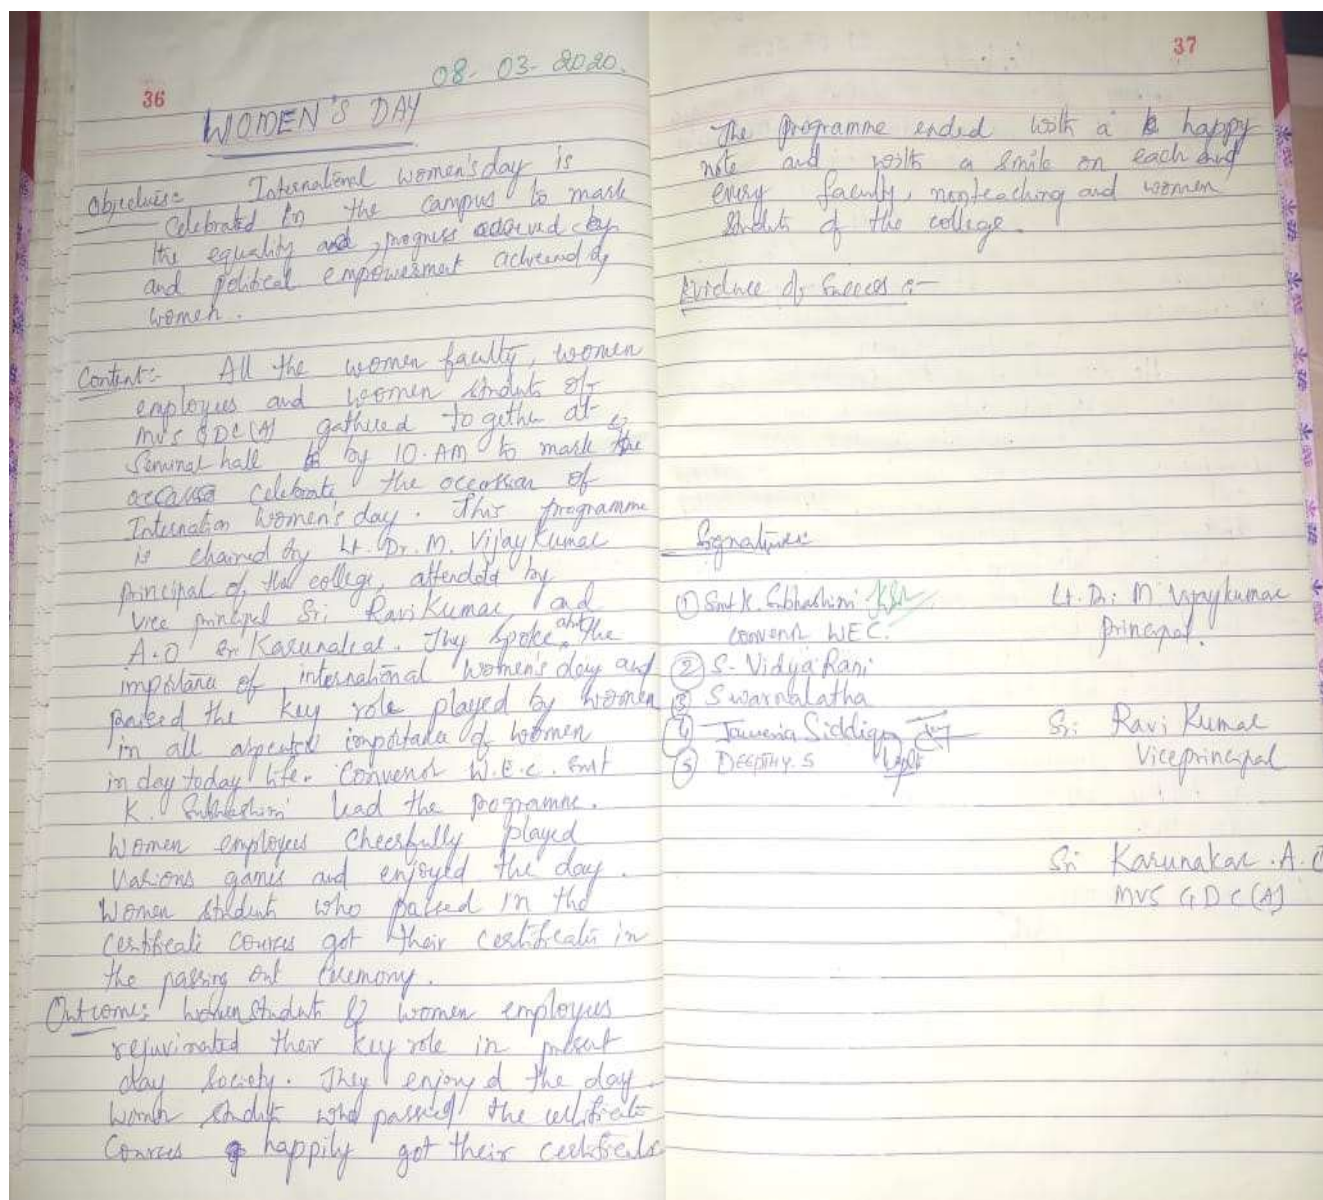 36
08-03-2020.
WOMEN'S DAY
Objectives:- International women's day is
Celebrated in the campus to mark
the equality and, progress by
and political empowerment achieved by
women.
Content:- All the women faculty, women
employees and women students of
MVS GDC(A) gathered together at
Seminar hall by 10.AM to mark the
celebrate the occassion of
Internation women's day. This programme
is chaired by Lt. Dr. M. Vijay Kumar
principal of the college, attended by
Vice principal Sri Ravi Kumar, and
A.O Sri Karunakar. They spoke abt the
importance of international women's day and
the key role played by women
in all importance of women
in day today life. Convenor W.E.C. Smt
K. Subhashini lead the programme.
Women employees cheerfully played
various games and enjoyed the day.
Women students who passed in the
certificate courses got their certificates in
the passing out ceremony.
Outcome: Women students & women employees
rejuvinated their key role in present
day society. They enjoyed the day.
Women students who passed the certificate
courses happily got their certificates
37
The programme ended with a happy
note and with a smile on each and
every faculty, nonteaching and women
students of the college.
Evidence of Success:-
Signatures:
① Smt K. Subhashini
convenor WEC.
② S. Vidya Rani
③ Swarnalatha
④ Javeria Siddiqua
⑤ DEEPTHY. S
Lt. Dr. M Vijaykumar
principal.
Sri Ravi Kumar
Viceprincipal
Sri Karunakar. A.O
MVS GDC(A)